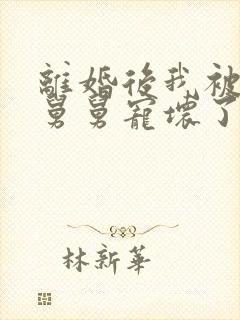 離婚後我被
舅舅寵壞了
林新華